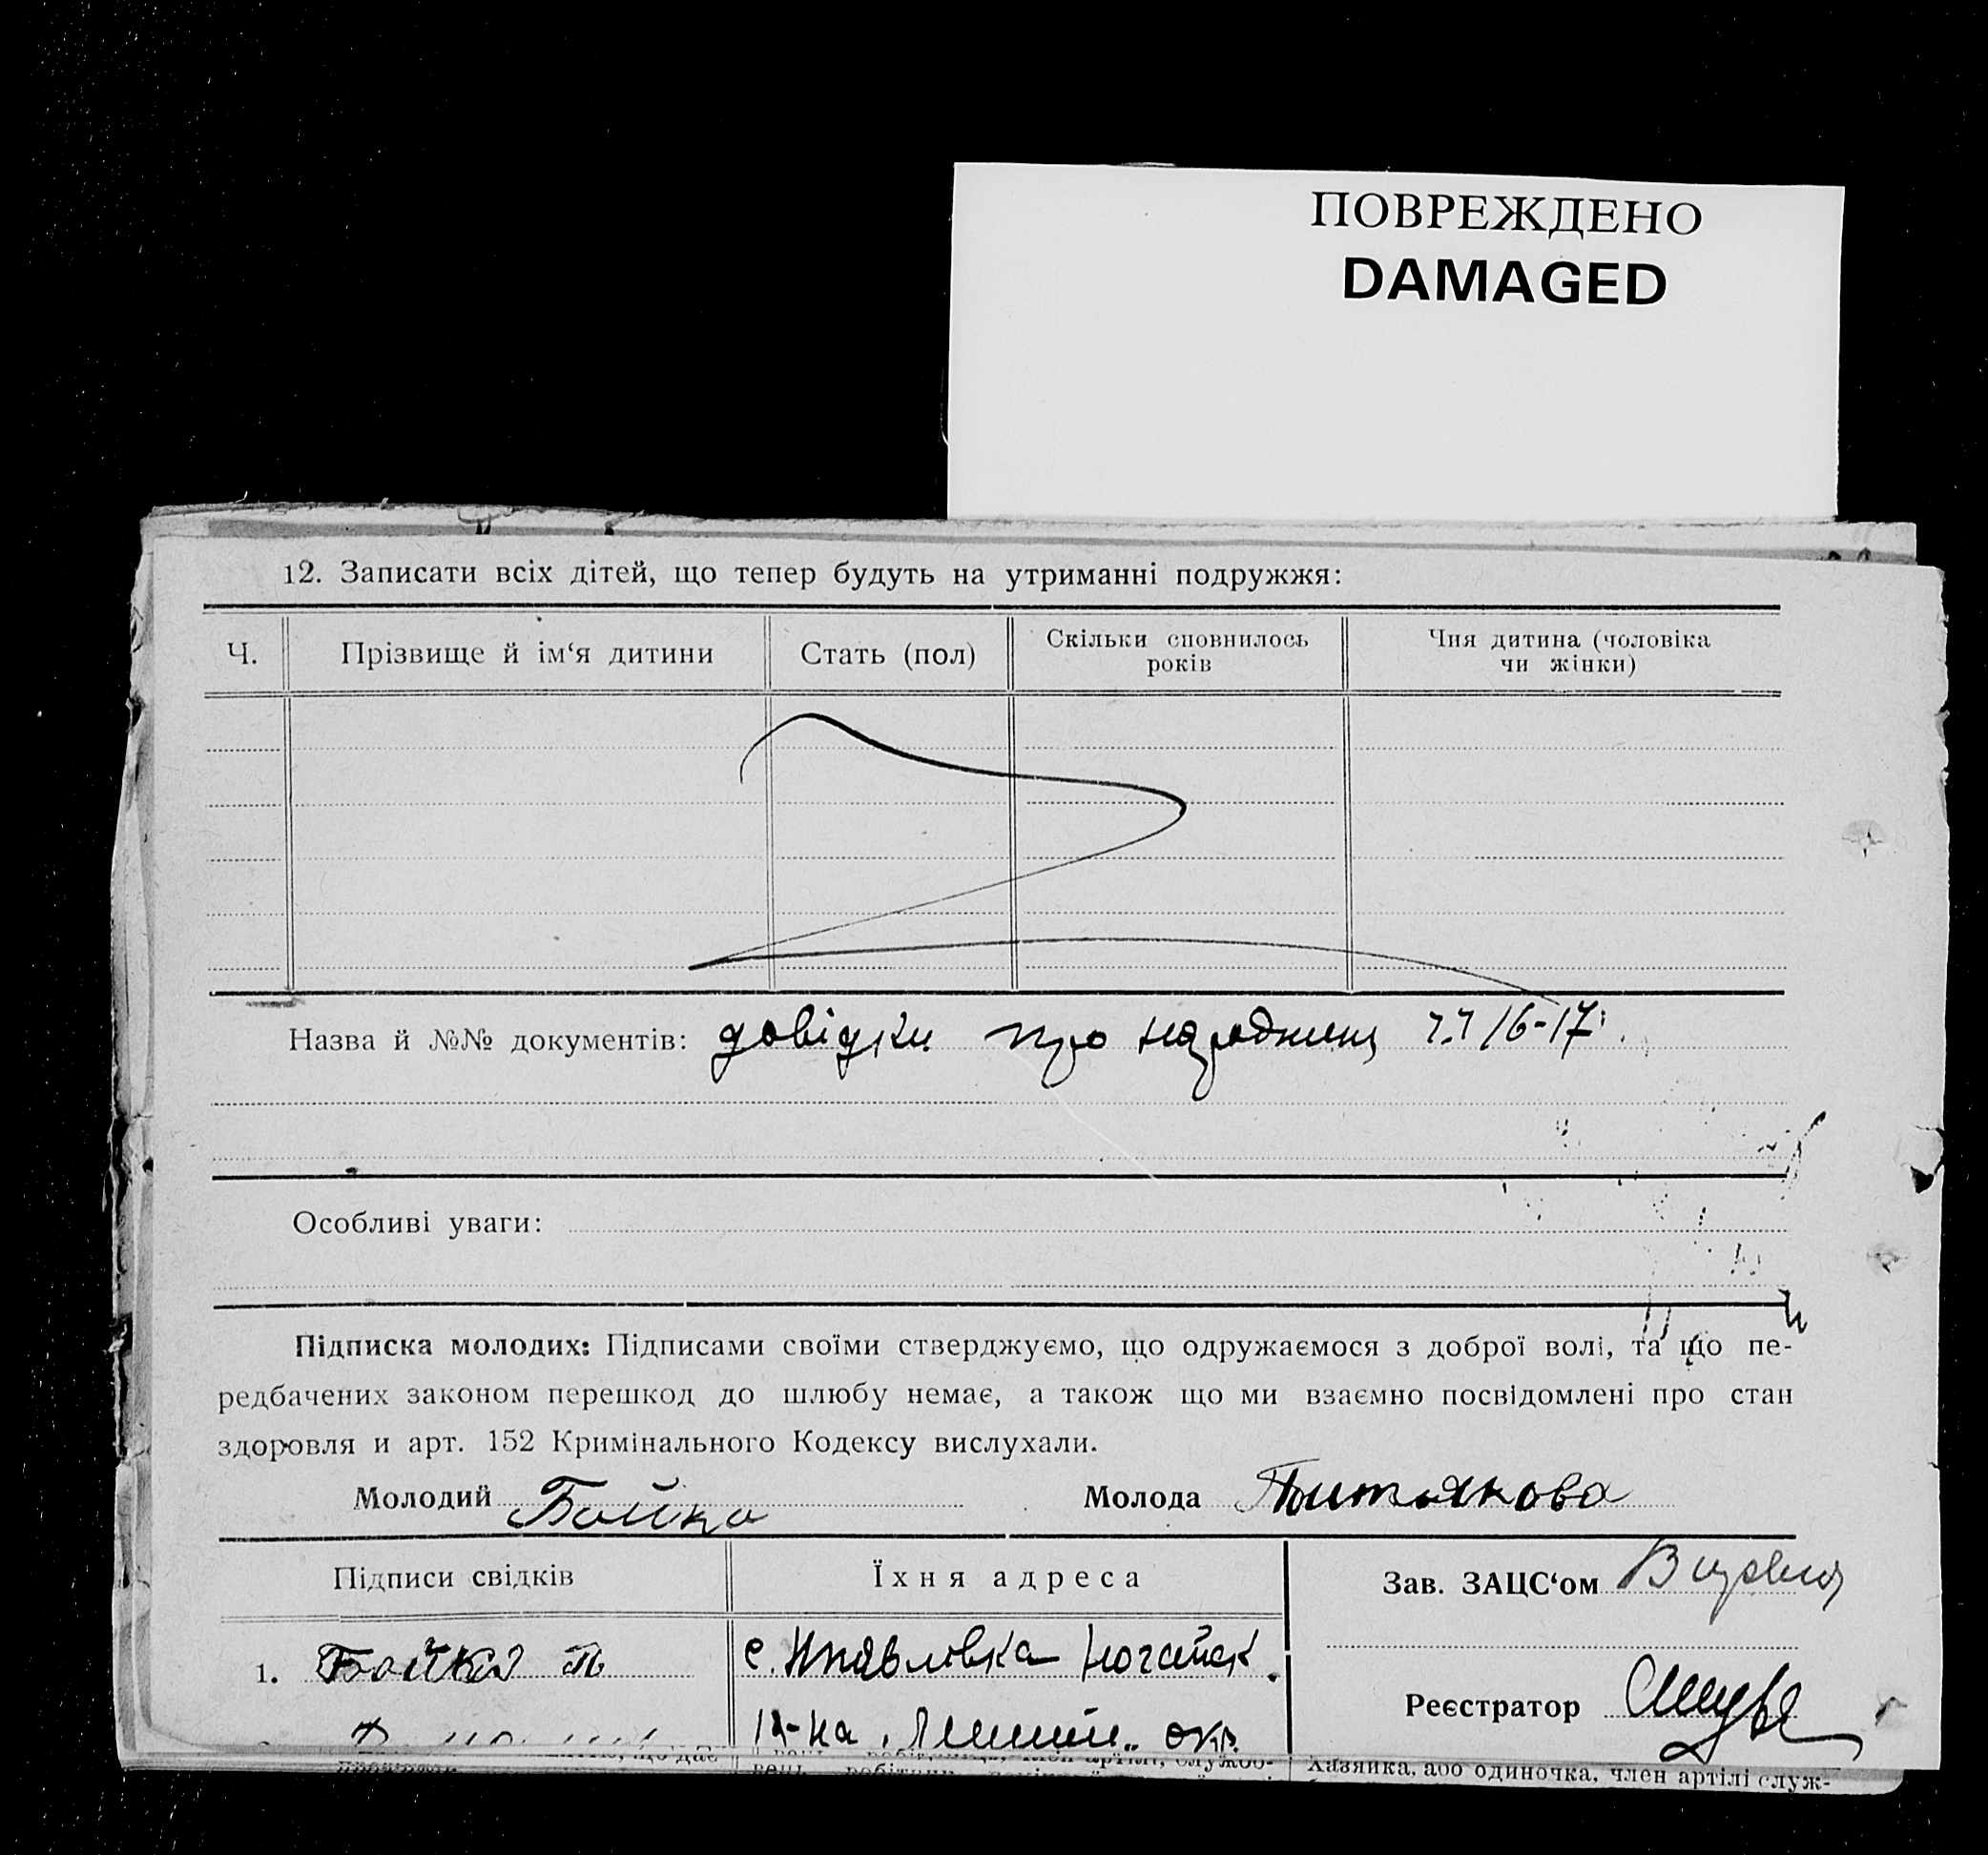 ПОВРЕЖДЕНО
DAMAGED
12. Записати всіх дітей, що тепер будуть на утриманні подружжя:
Ч. Прізвище й ім‘я дитини Стать (пол) Скільки сповнилось років Чия дитина (чоловіка чи жінки)
Назва й №№ документів: довідки про народження 16-17
Особливі уваги:
Підписка молодих: Підписами своїми стверджуємо, що одружаємося з доброї волі, та що пе-
редбачених законом перешкод до шлюбу немає, а також що ми взаємно посвідомлені про стан
здоровля и арт. 152 Кримінального Кодексу вислухали.
Молодий Бойко Молода
Підписи свідків Їхня адреса Зав. ЗАЦС‘ом
1. Бойко с.
Реєстратор
р-на окр.
що дає службо-
Хазяйка, або одиночка, член артілі служ-